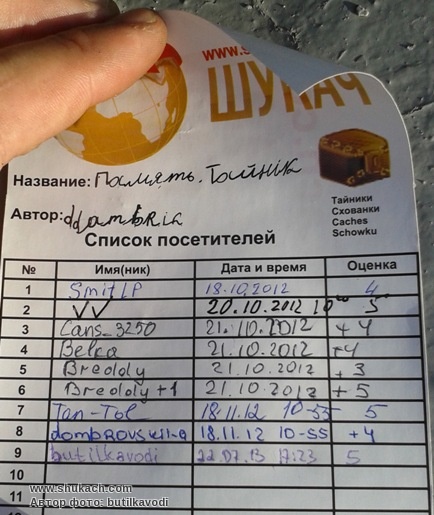 www.s
ШУКАЧ
Название: Память. Тайнік
Автор: ddambria
Тайники
Схованки
Caches
Schowku
Список посетителей
№ Имя(ник) Дата и время Оценка
1 SmitLP 18.10.2012 4
2 VV 20.10.2012 10⁰⁰ 5
3 Cans_3250 21.10.2012 +4
4 Belka 21.10.2012 +4
5 Breololy 21.10.2012 +3
6 Breololy +1 21.10.2012 +5
7 Tan-Tol 18.11.12 10-55 5
8 dombrovskiu-a 18.11.12 10-55 +4
9 butilkavodi 22.07.13 17:23 5
10
11
www.shukach.com
Автор фото: butilkavodi